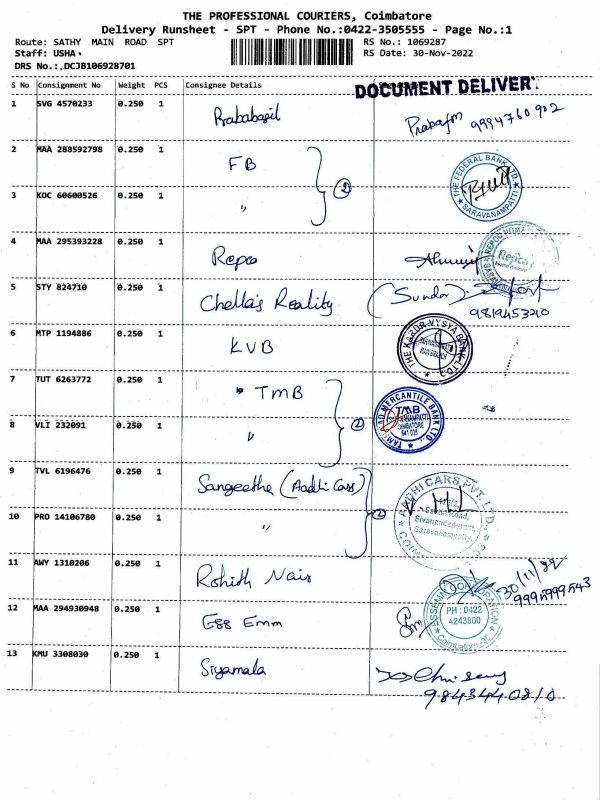 THE PROFESSIONAL COURIERS, Coimbatore
Delivery Runsheet - SPT - Phone No.:0422-3505555 - Page No.:1
Route: SATHY MAIN ROAD SPT
RS No.: 1069287
Staff: USHA
RS Date: 30-Nov-2022
DRS No.:,DCJB106928701
S No Consignment No Weight PCS Consignee Details
DOCUMENT DELIVER
1 SVG 4570233 0.250 1
9994760902
2 MAA 288592798 0.250 1 FB
THE FEDERAL BANK LTD. SARAVANAMPATTI
3 KOC 60600526 0.250 1 "
2
4 MAA 295393228 0.250 1 Repco
Repco
5 STY 824710 0.250 1 Chella's Reality (Sundar)
9819453210
6 MTP 1194886 0.250 1 KVB
THE KARUR VYSYA BANK LTD
7 TUT 6263772 0.250 1 TMB
TAMILNAD MERCANTILE BANK LTD.
TMB
COIMBATORE
641 035
8 VLI 232091 0.250 1 "
2
9 TVL 6196476 0.250 1 Sangeetha (Aadhi Cars)
AADHI CARS PVT. LTD.
Sivanandapuram,
Saravanampatty,
10 PRO 14106780 0.250 1 "
2
11 AWY 1310206 0.250 1 Rohith Nair
30/11/22
9995999543
12 MAA 294930948 0.250 1 Ess Emm
ESSEMM CORPORATION
PH : 0422
4243800
Coimbatore-35
13 KMU 3308030 0.250 1 Siyamala
9843440810